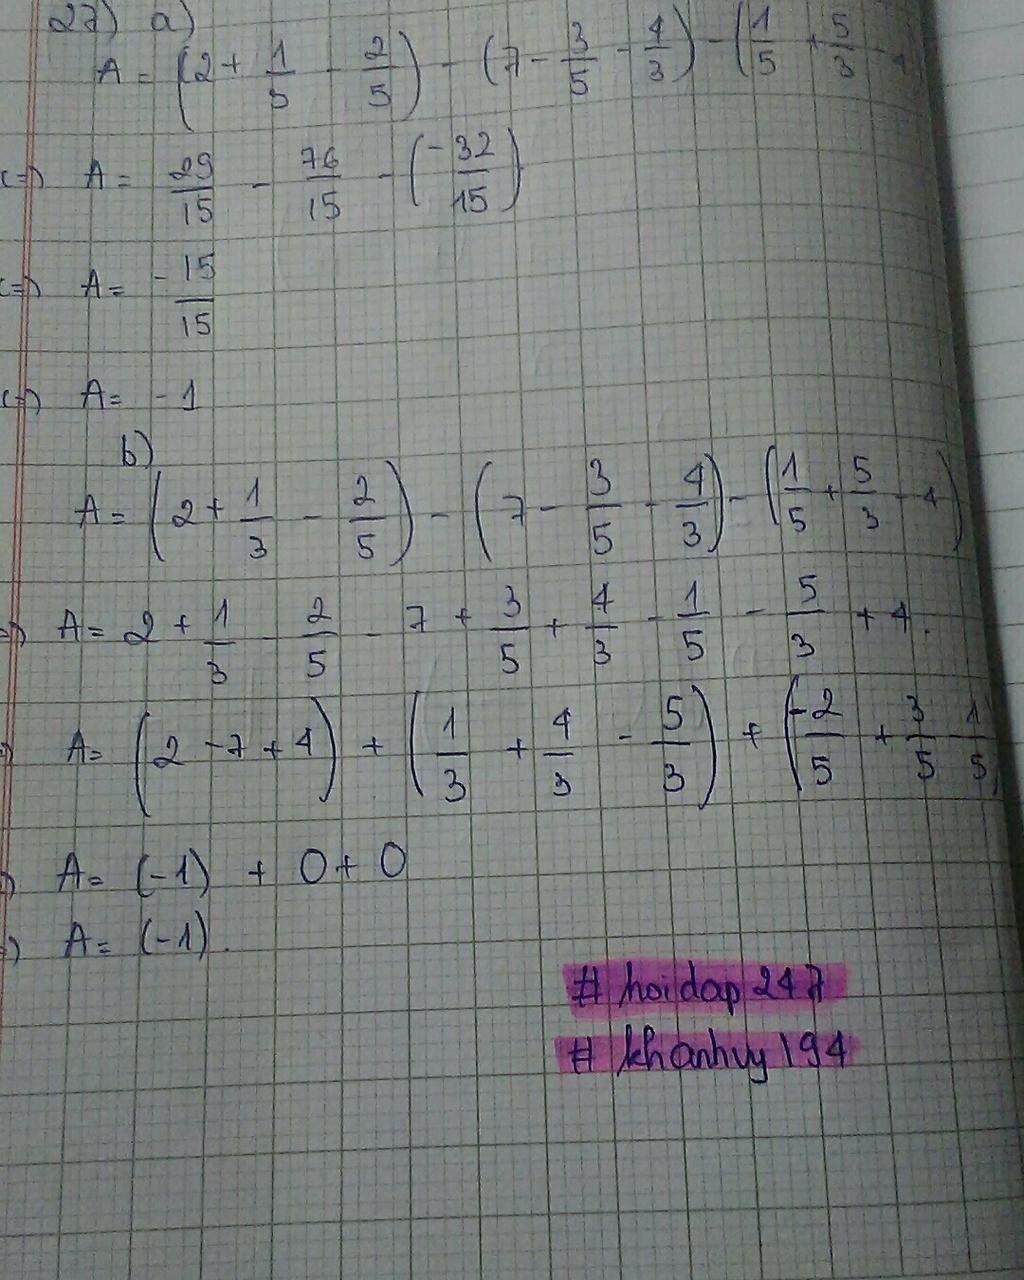 27) a)
A = (2 + 1/3 - 2/5) - (7 - 3/5 - 4/3) - (1/5 + 5/3 - 4
<=> A = 29/15 - 76/15 - (-32/15)
<=> A = -15/15
<=> A = -1
b)
A = (2 + 1/3 - 2/5) - (7 - 3/5 - 4/3) - (1/5 + 5/3 - 4)
=> A = 2 + 1/3 - 2/5 - 7 + 3/5 + 4/3 - 1/5 - 5/3 + 4.
=> A = (2 - 7 + 4) + (1/3 + 4/3 - 5/3) + (-2/5 + 3/5 - 1/5)
=> A = (-1) + 0 + 0
=> A = (-1).
# hoidap 247
# khanhvy 194